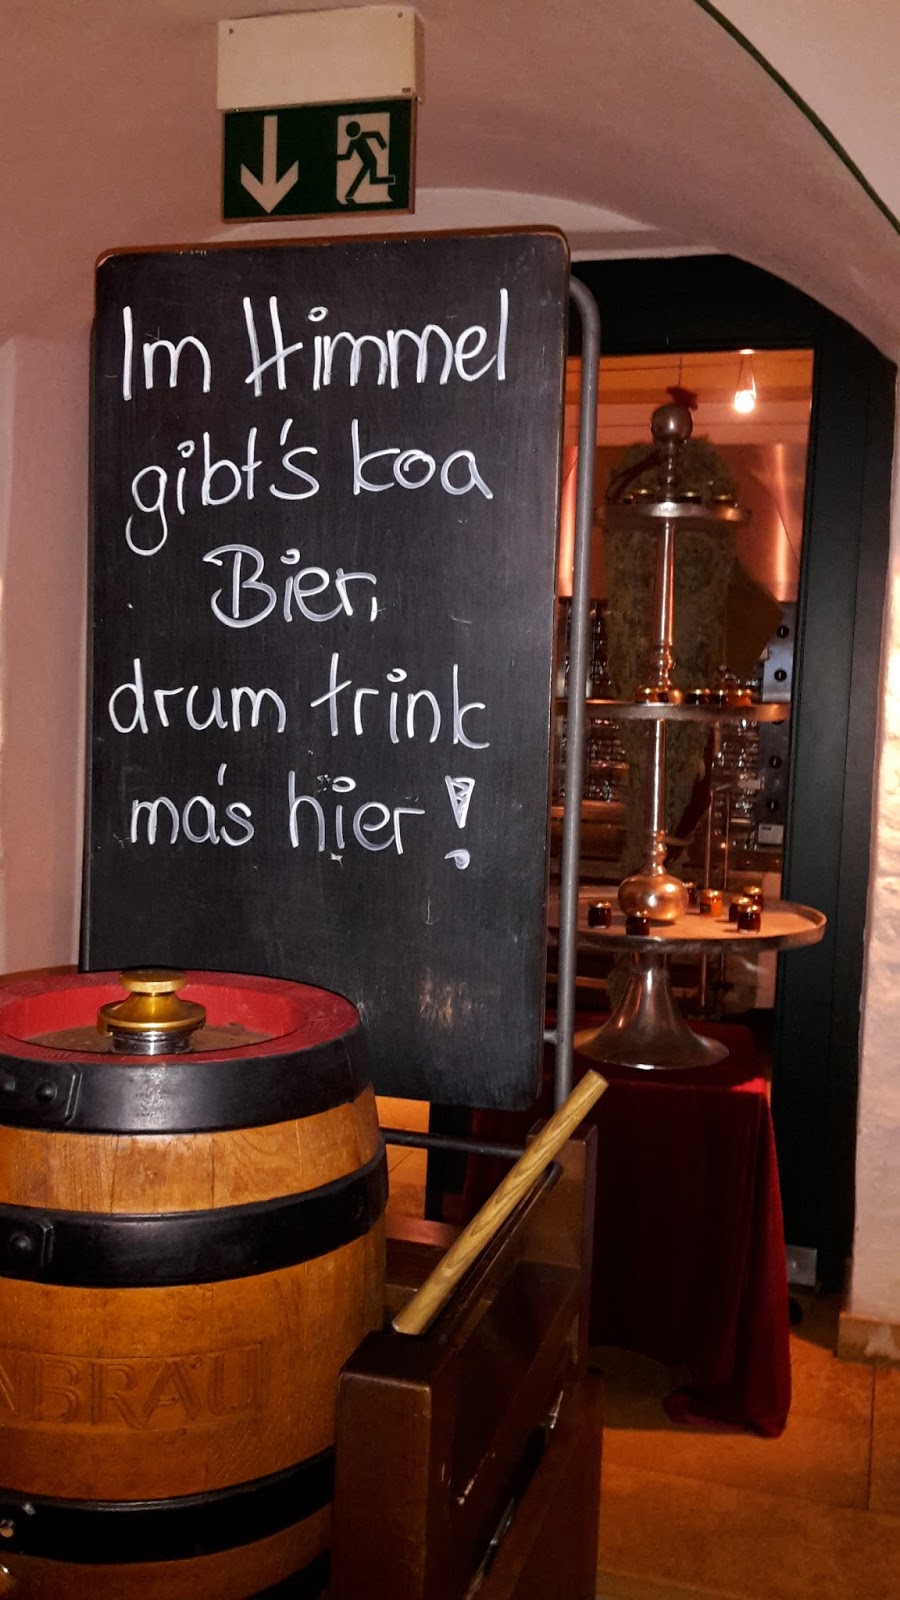 Im Himmel
gibt's koa
Bier,
drum trink
ma's hier!
NBRÄU